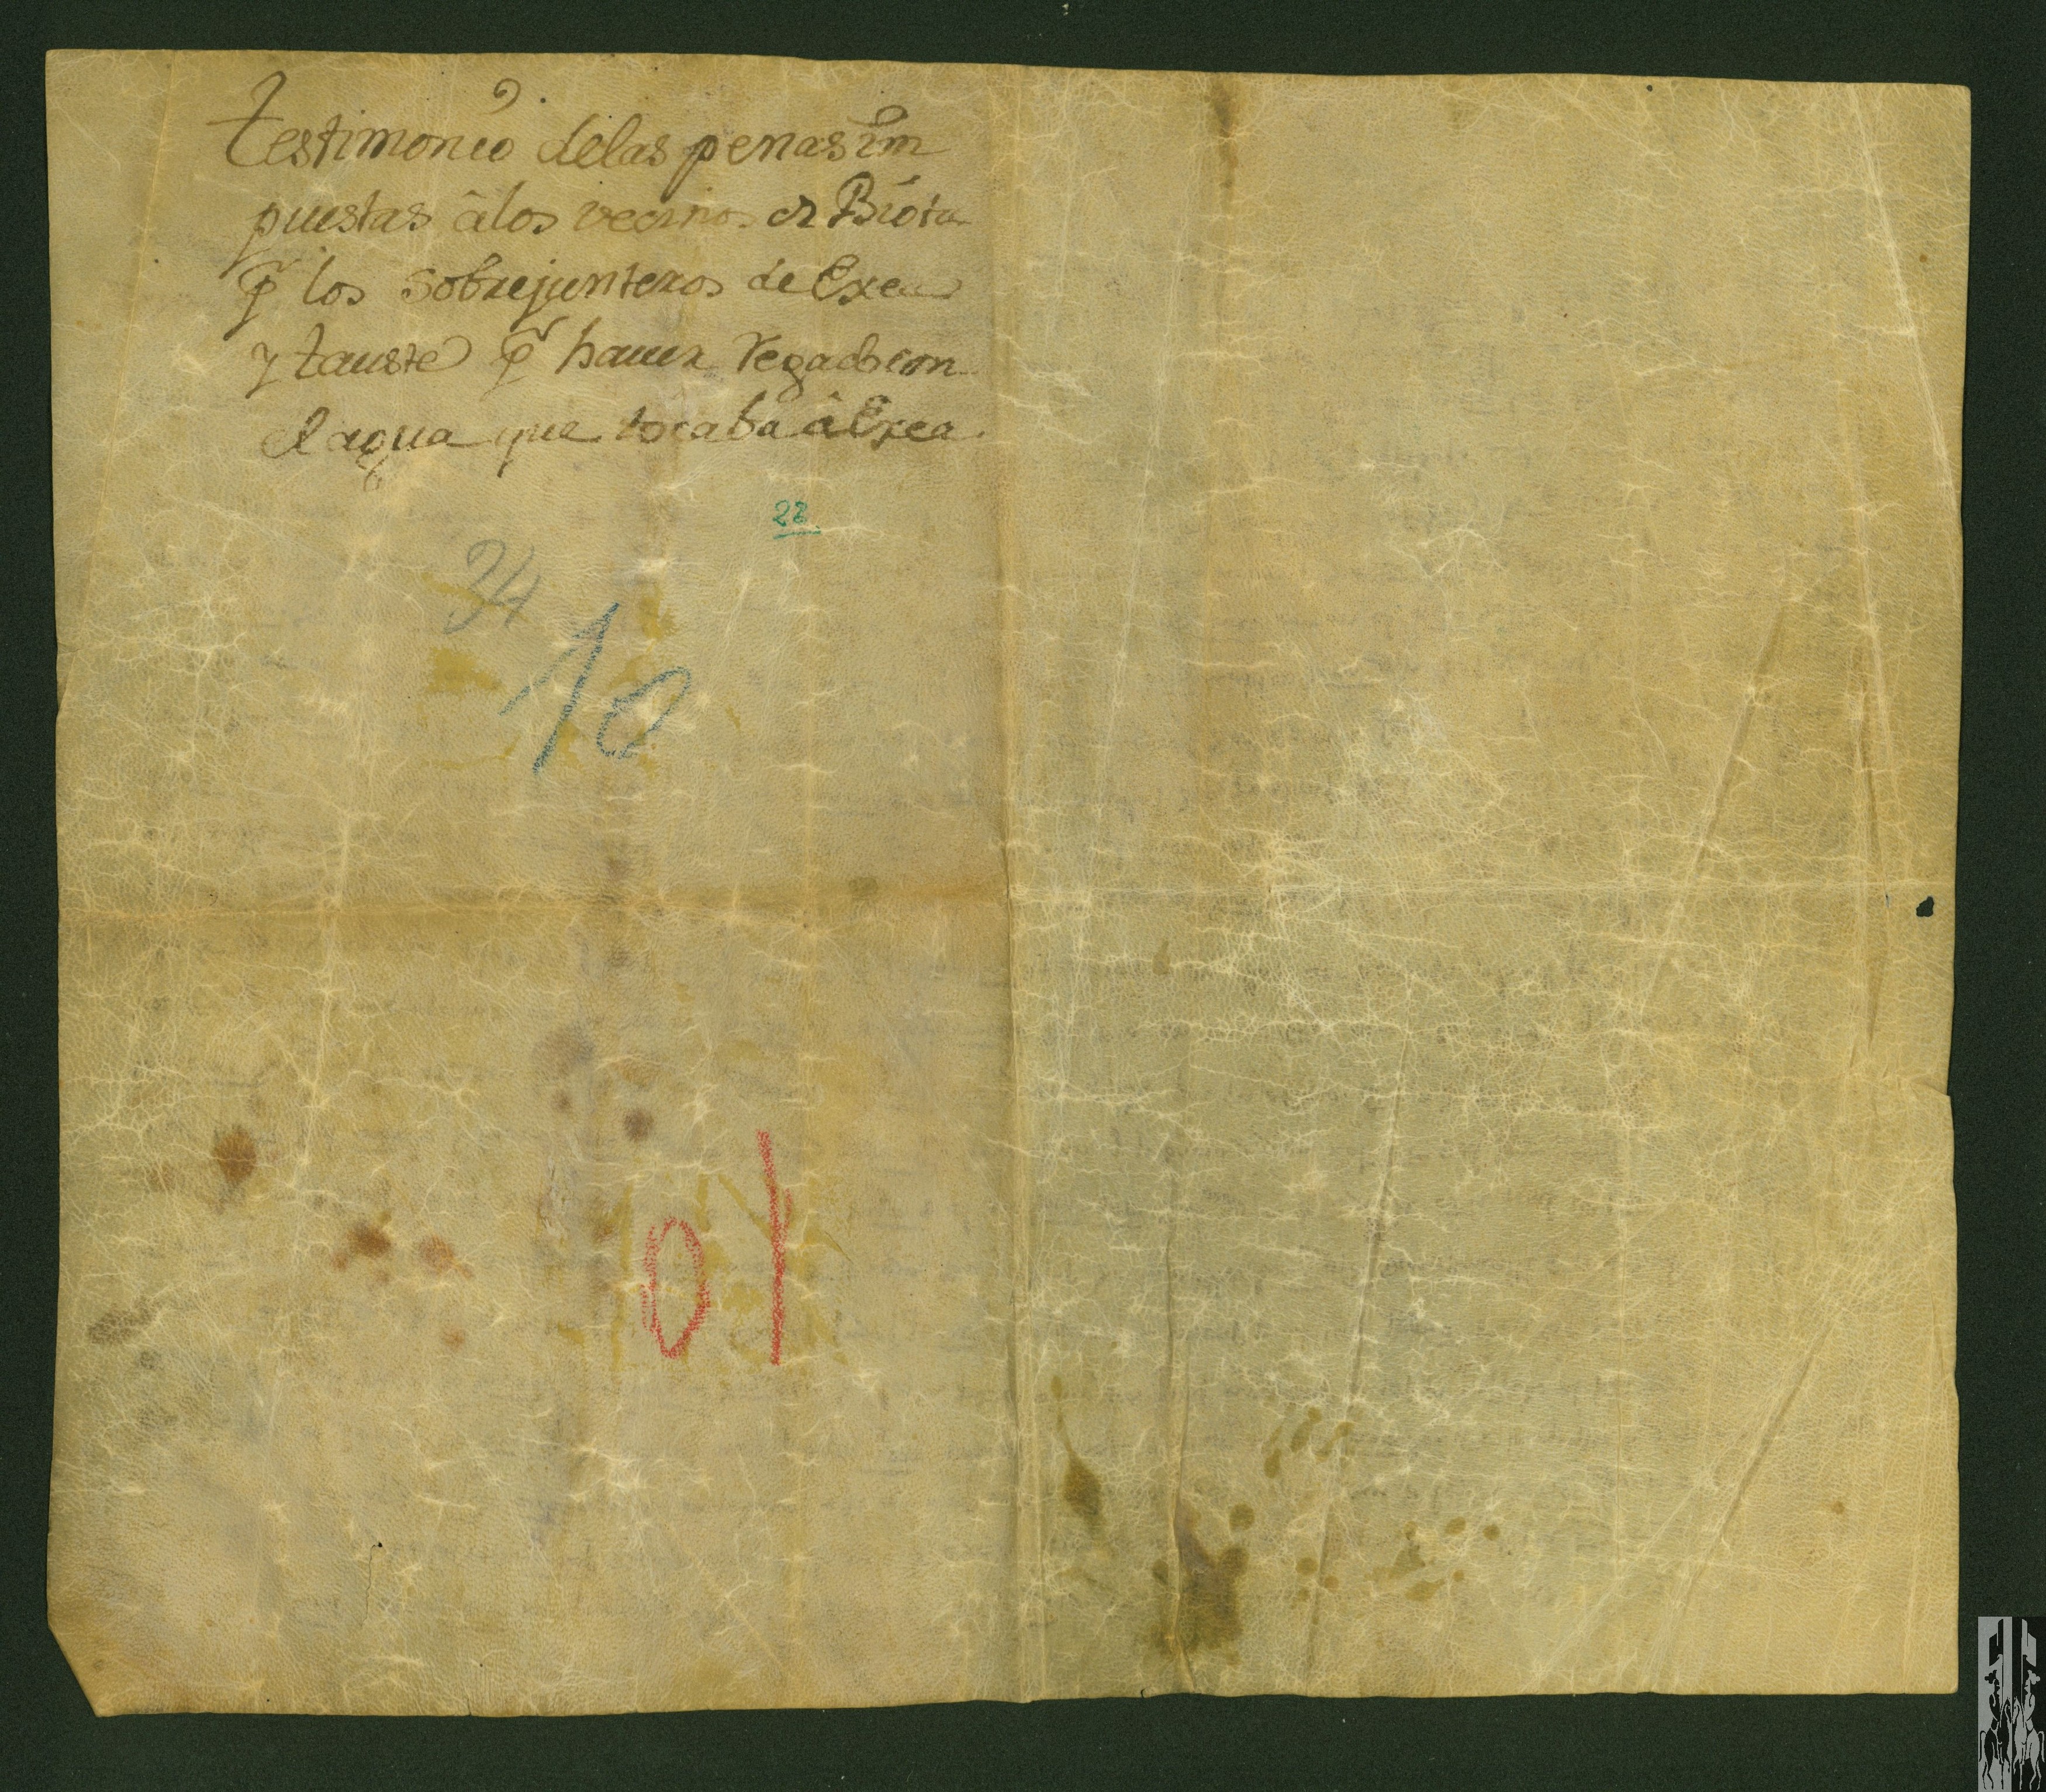 testimonio delas penas im
puestas âlos vecinos de Biota
p̃ los sobrejunteros de Exea
y tauste p̃ hauer regado con
el agua que tocaba â Exea.
22
34
10
10